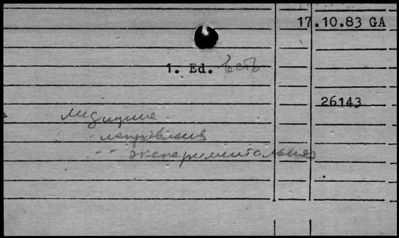 17.10.83 GA
1. Ed. Есть
26143
медицина
- направления
-- экспериментальная